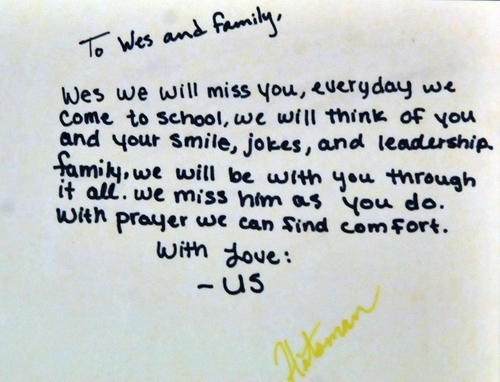 To Wes and family,
Wes we will miss you, everyday we
come to school, we will think of you
and your smile, jokes, and leadership.
family, we will be with you through
it all. we miss him as you do.
With prayer we can find comfort.
With Love:
- US